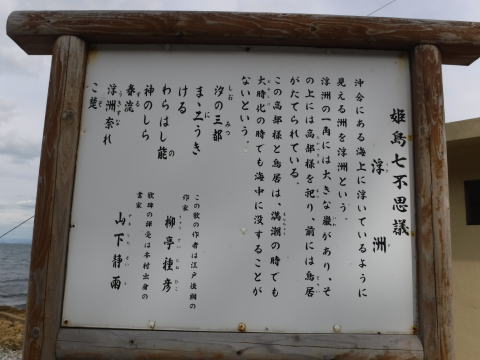 姫島七不思議
浮洲
沖合にある海上に浮いているように
見える洲を浮洲という。
浮洲の一角には大きな巌があり、そ
の上には高部様を祀り、前には鳥居
がたてられている。
この高部様と鳥居は、満潮の時でも
大時化の時でも海中に没することが
ないという。
汐の三都
まゝ耳うき
ける
わらはし能
神のしら
春流
浮洲奈れ
こ楚
この歌の作者は江戸後期の
作家
柳亭種彦
歌碑の揮毫は本村出身の
書家
山下静雨